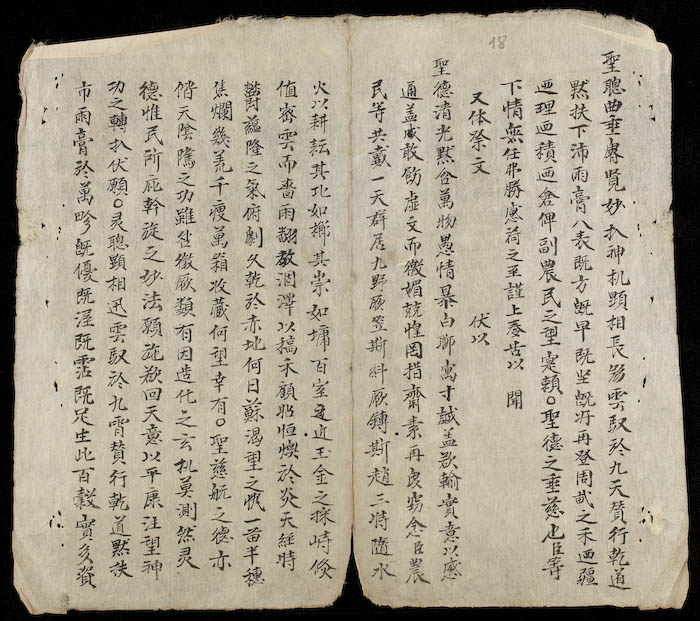 18
聖聰曲垂睿览妙扒神机顕相長驾雲馭於九天賛行乾道
黙扶下沛雨膏八表既方既早既坚既冴再登周畝之禾迺疆
迺理迺積迺倉俾副農民之望寔頼〇聖德之垂慈也臣等
下情無任弗勝感荷之至謹上奏告以 聞
又体祭文 伏以
聖德清光黙含萬物愚情暴白聊寓寸誠盖欲输實意以感
通盖咸敢飭虚文而徼媚兢惶罔措齋素再虔窃念臣農
民等共戴一天群居九野厥笠斯糾厥鎛斯趙三時隨水
火以耕耘其比如櫛其崇如墉百室 近玉金之採峙倏
值密雲而嗇雨翻教涸澤以稿禾顧兆恒燠於炎天経時
欝蘊隆之氣俯劇久乾於赤地何日蘇渴望之 一苗半穗
焦爛幾荒千庾萬箱收藏何望幸有〇聖慈航之德亦
偕天陰隲之功雖咎徵厥類有因造化之玄机莫測然灵
德惟民所庇幹旋之妙法願施欲回天意以平康汪望神
功之轉扒伏願〇灵聰顕相迅雲馭於九霄賛行乾道黙扶
市雨膏於萬畛既優既渥既霑既足生此百穀實多資